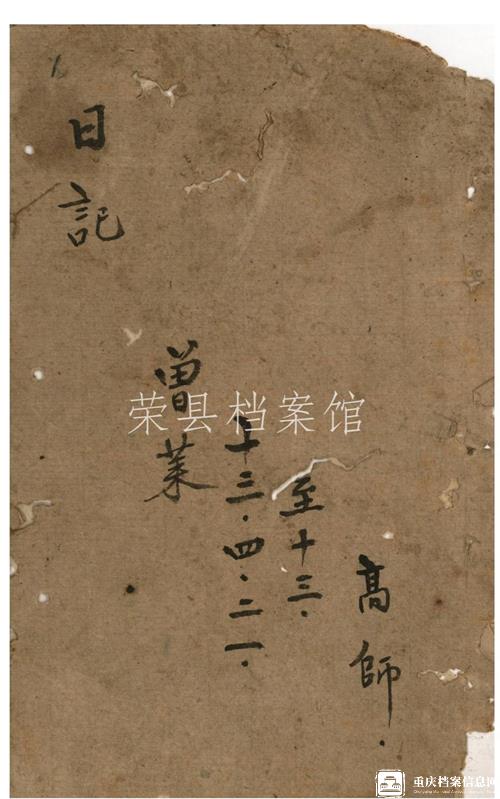 日記
曾莱
十三·四·二一·
至十三·
高師·
荣县档案馆
重庆档案信息网